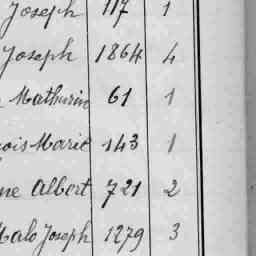 Joseph 117 1
Joseph 1864 4
Mathurin 61 1
çois Marie 143 1
ne Albert 721 2
Malo Joseph 1279 3